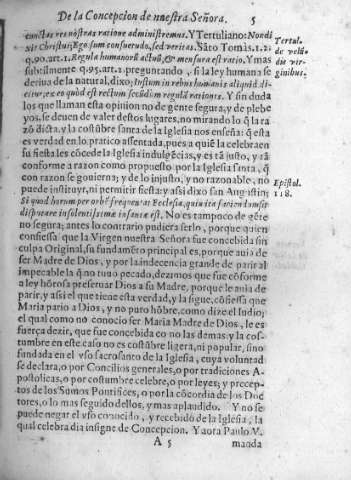 De la Concepcion de nuestra Señora. 5
cunctas res nostras ratione administremus. Y Tertuliano: Non di
xit Christus; Ego sum consuetudo, sed veritas. Sāto Tomàs. 1. 2.
q. 90. art. 1. Regula humanorũ actũ, & mensura est ratio. Y mas
subtilmente q. 95. art. 2. preguntando, si la ley humana se
deriua de la natural, dixo; Iustum in rebus humanis aliquid di-
citur, ex eo quod est rectum secũdum regulã rationis. Y sin duda
los que llaman esta opinion no de gente segura, y de plebe
yos, se deuen de valer destos lugares, no mirando lo q̃ la ra
zõ dicta, y la costũbre santa de la Iglesia nos enseña: q̃ esta
es verdad en lo pratico assentada, pues a quiẽ la celebra en
su fiesta les cõcede la Iglesia indulgẽcias, y es tã justo, y tã
conforme a razon como propuesto por la Iglesia santa, q̃
con razon se gouierna; y de lo injusto, y no razonable, no
puede instituyr, ni permitir fiesta: y assi dixo san Augustin;
Si quod harum per orbẽ frequentat Ecclesia, quin ita faciendum sit
disputare insolentissimæ insaniæ est. No es tampoco de gẽte
no segura; antes lo contrario pudiera serlo, porque quien
confiessa que la Virgen nuestra Señora fue concebida sin
culpa Original, su fundamẽto principal es, porque auia de
ser Madre de Dios, y por la indecencia grande de parir al
impecable la q̃ no tuuo pecado, dezimos que fue cõforme
a ley hõrosa preseruar Dios a su Madre, porque le auia de
parir, y assi el que tiene esta verdad, y la sigue, cõfiessa que
Maria pario a Dios, y no puro hõbre, como dize el Iudio;
el qual como no conocio ser Maria Madre de Dios, le es
fuerça dezir, que fue concebida co no las demas: y la cos-
tumbre en este caso no es costũbre ligera, ni popular, sino
fundada en el vso sacrosanto de la Iglesia, cuya voluntad
se declara, o por Concilios generales, o por tradiciones A-
postolicas, o por costumbre celebre, o por leyes; y precep-
tos de los Sumos Pontifices, o por la cõcordia de los Doc
tores, o lo mas seguido dellos, y mas aplaudido. Y no se
puede negar el vso conocido, y recebido de la Iglesia, la
qual celebra dia insigne de Concepcion. Y aora Paulo V.
A 5 manda
Tertul.
de velã-
dis vir-
ginibus.
Epistol.
118.